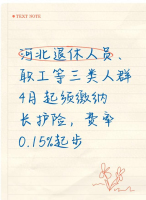 TEXT NOTE
河北退休人员、
职工等三类人群
4月起须缴纳
长护险，费率
0.15%起步